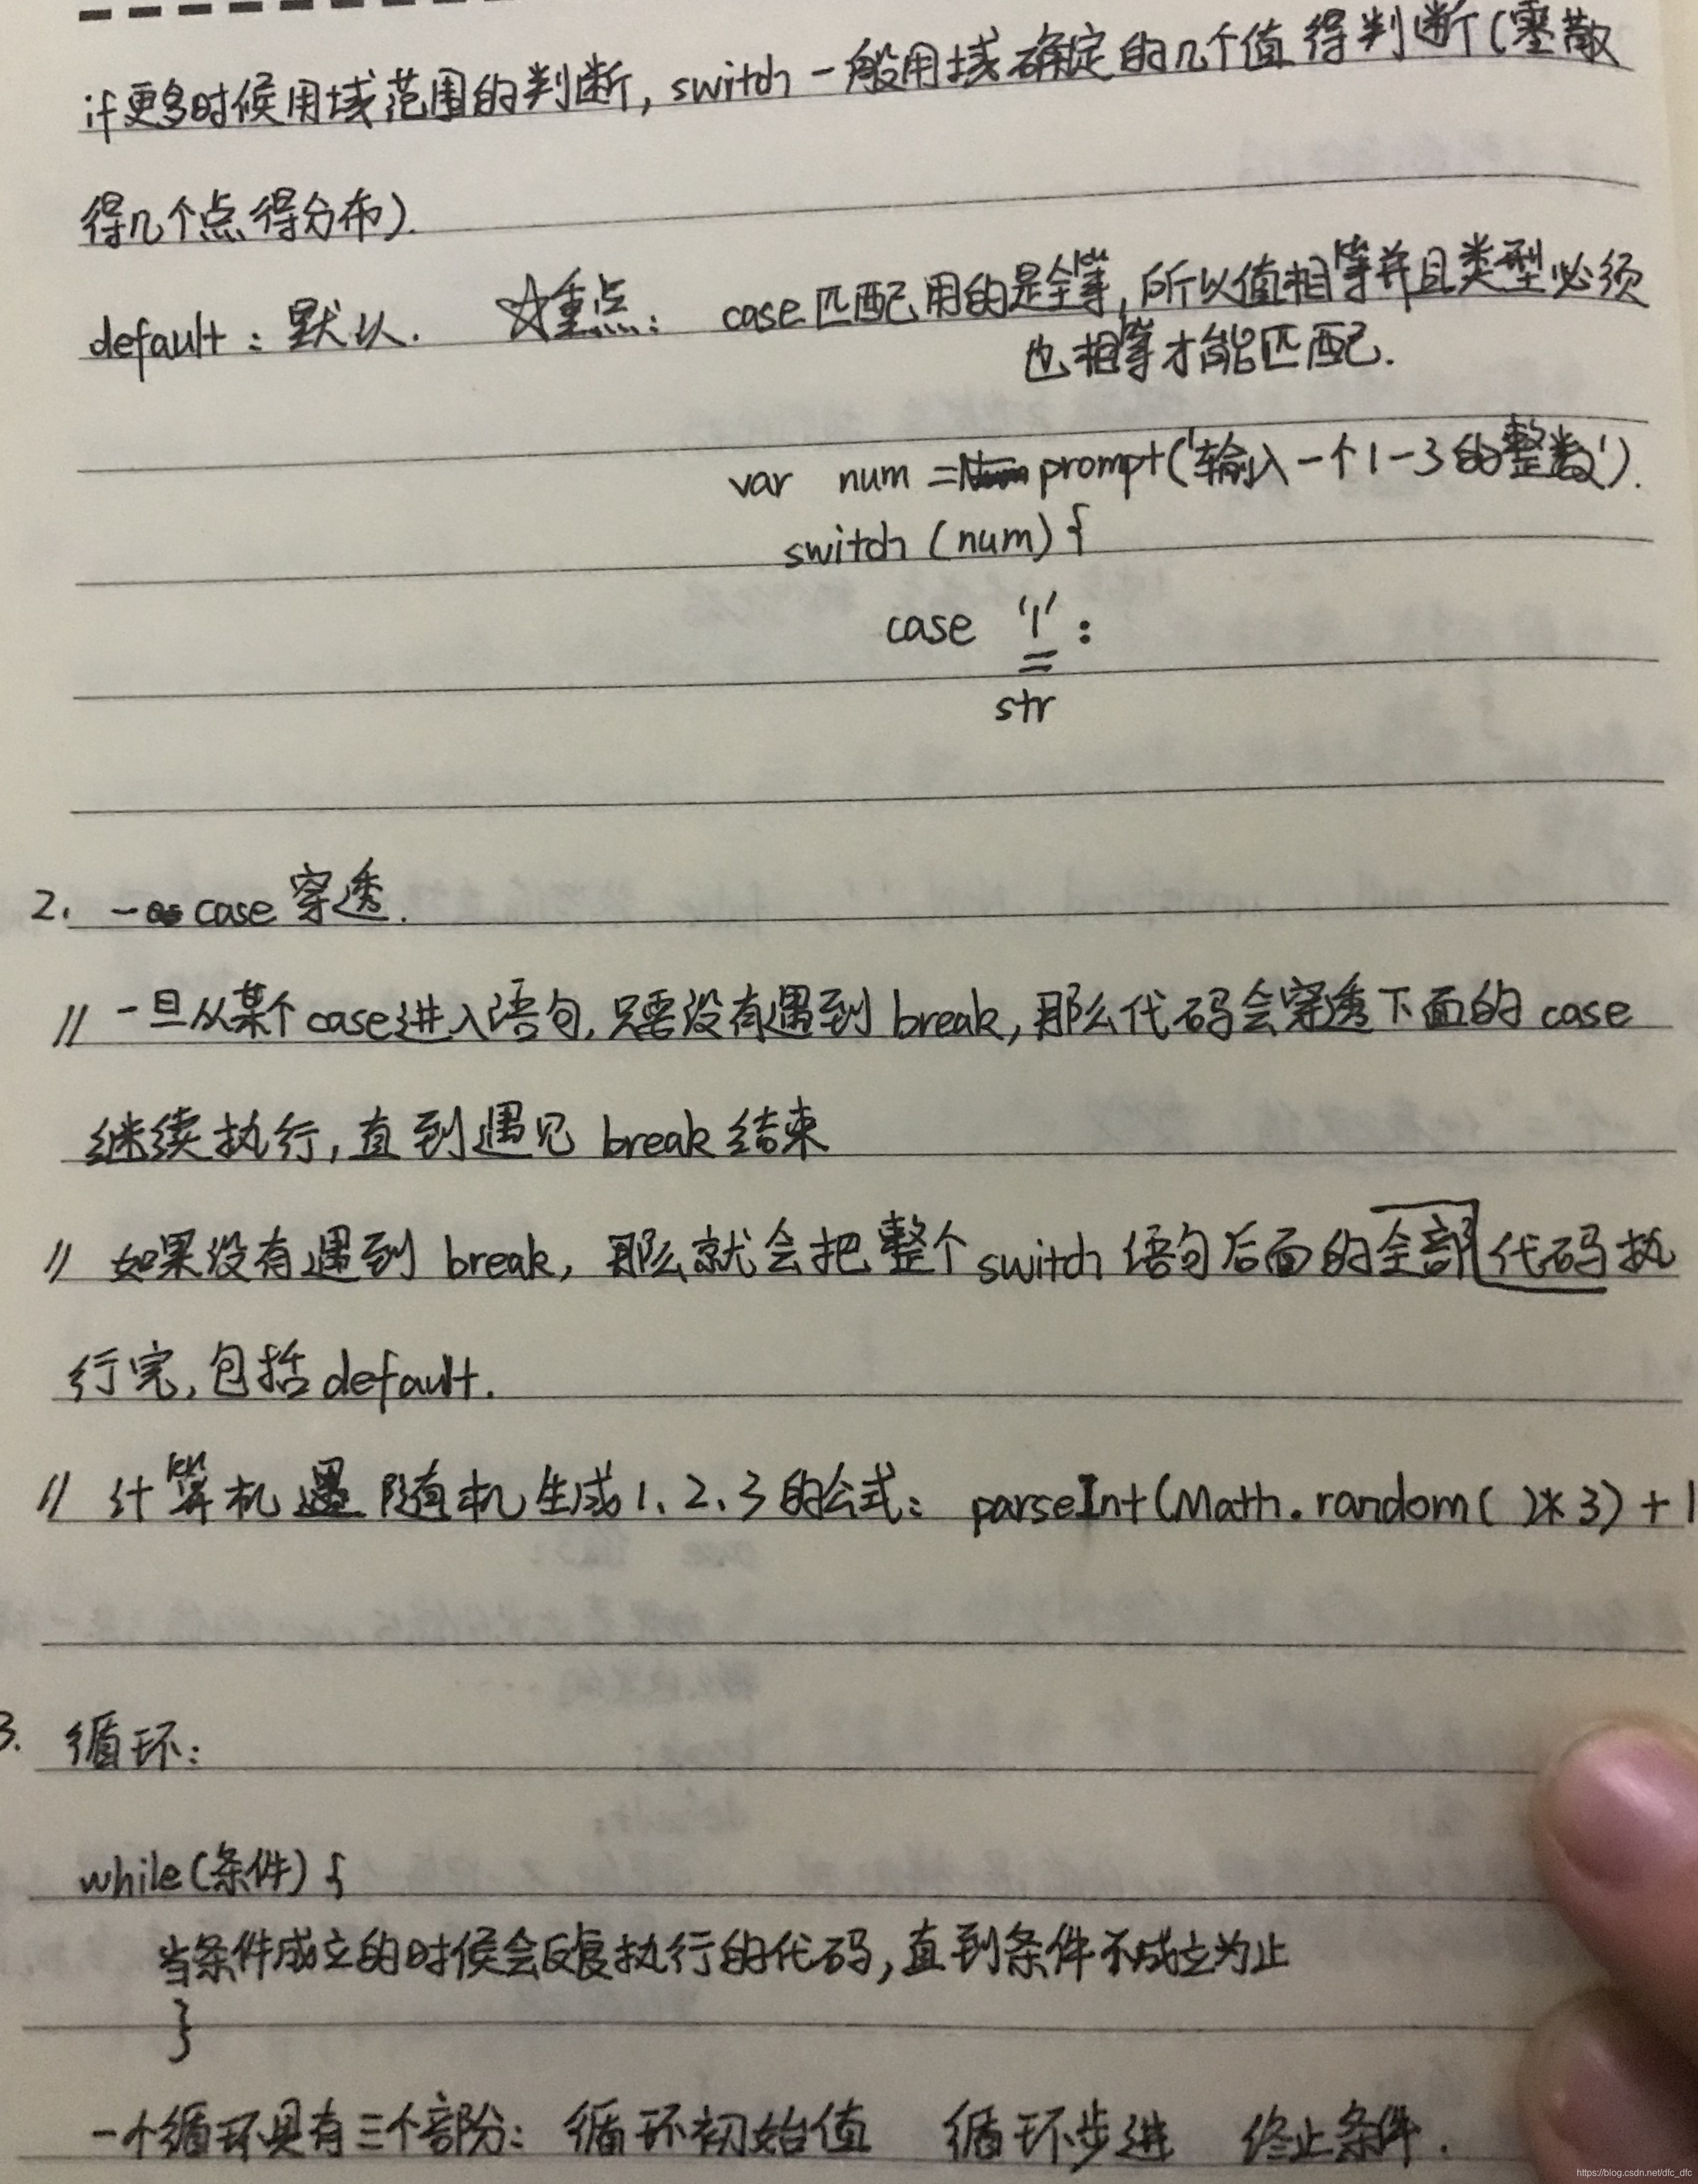 if更多时候用域范围的判断, switch一般用域确定的几个值得判断(零散
得几个点得分布).
default: 默认. ☆重点: case匹配用的是全等, 所以值相等并且类型必须
也相等才能匹配.
var num = prompt('输入一个1-3的整数').
switch (num) {
case '1':
str
2. — case 穿透.
// 一旦从某个case进入语句, 只要没有遇到 break, 那么代码会穿透下面的 case
继续执行, 直到遇见 break 结束
// 如果没有遇到 break, 那么就会把整个switch语句后面的全部代码执
行完, 包括default.
// 计算机随机生成1、2、3的公式: parseInt(Math.random( )* 3) + 1
3. 循环:
while(条件) {
当条件成立的时候会反复执行的代码, 直到条件不成立为止
}
一个循环具有三个部分: 循环初始值 循环步进 终止条件.
https://blog.csdn.net/dfc_dfc